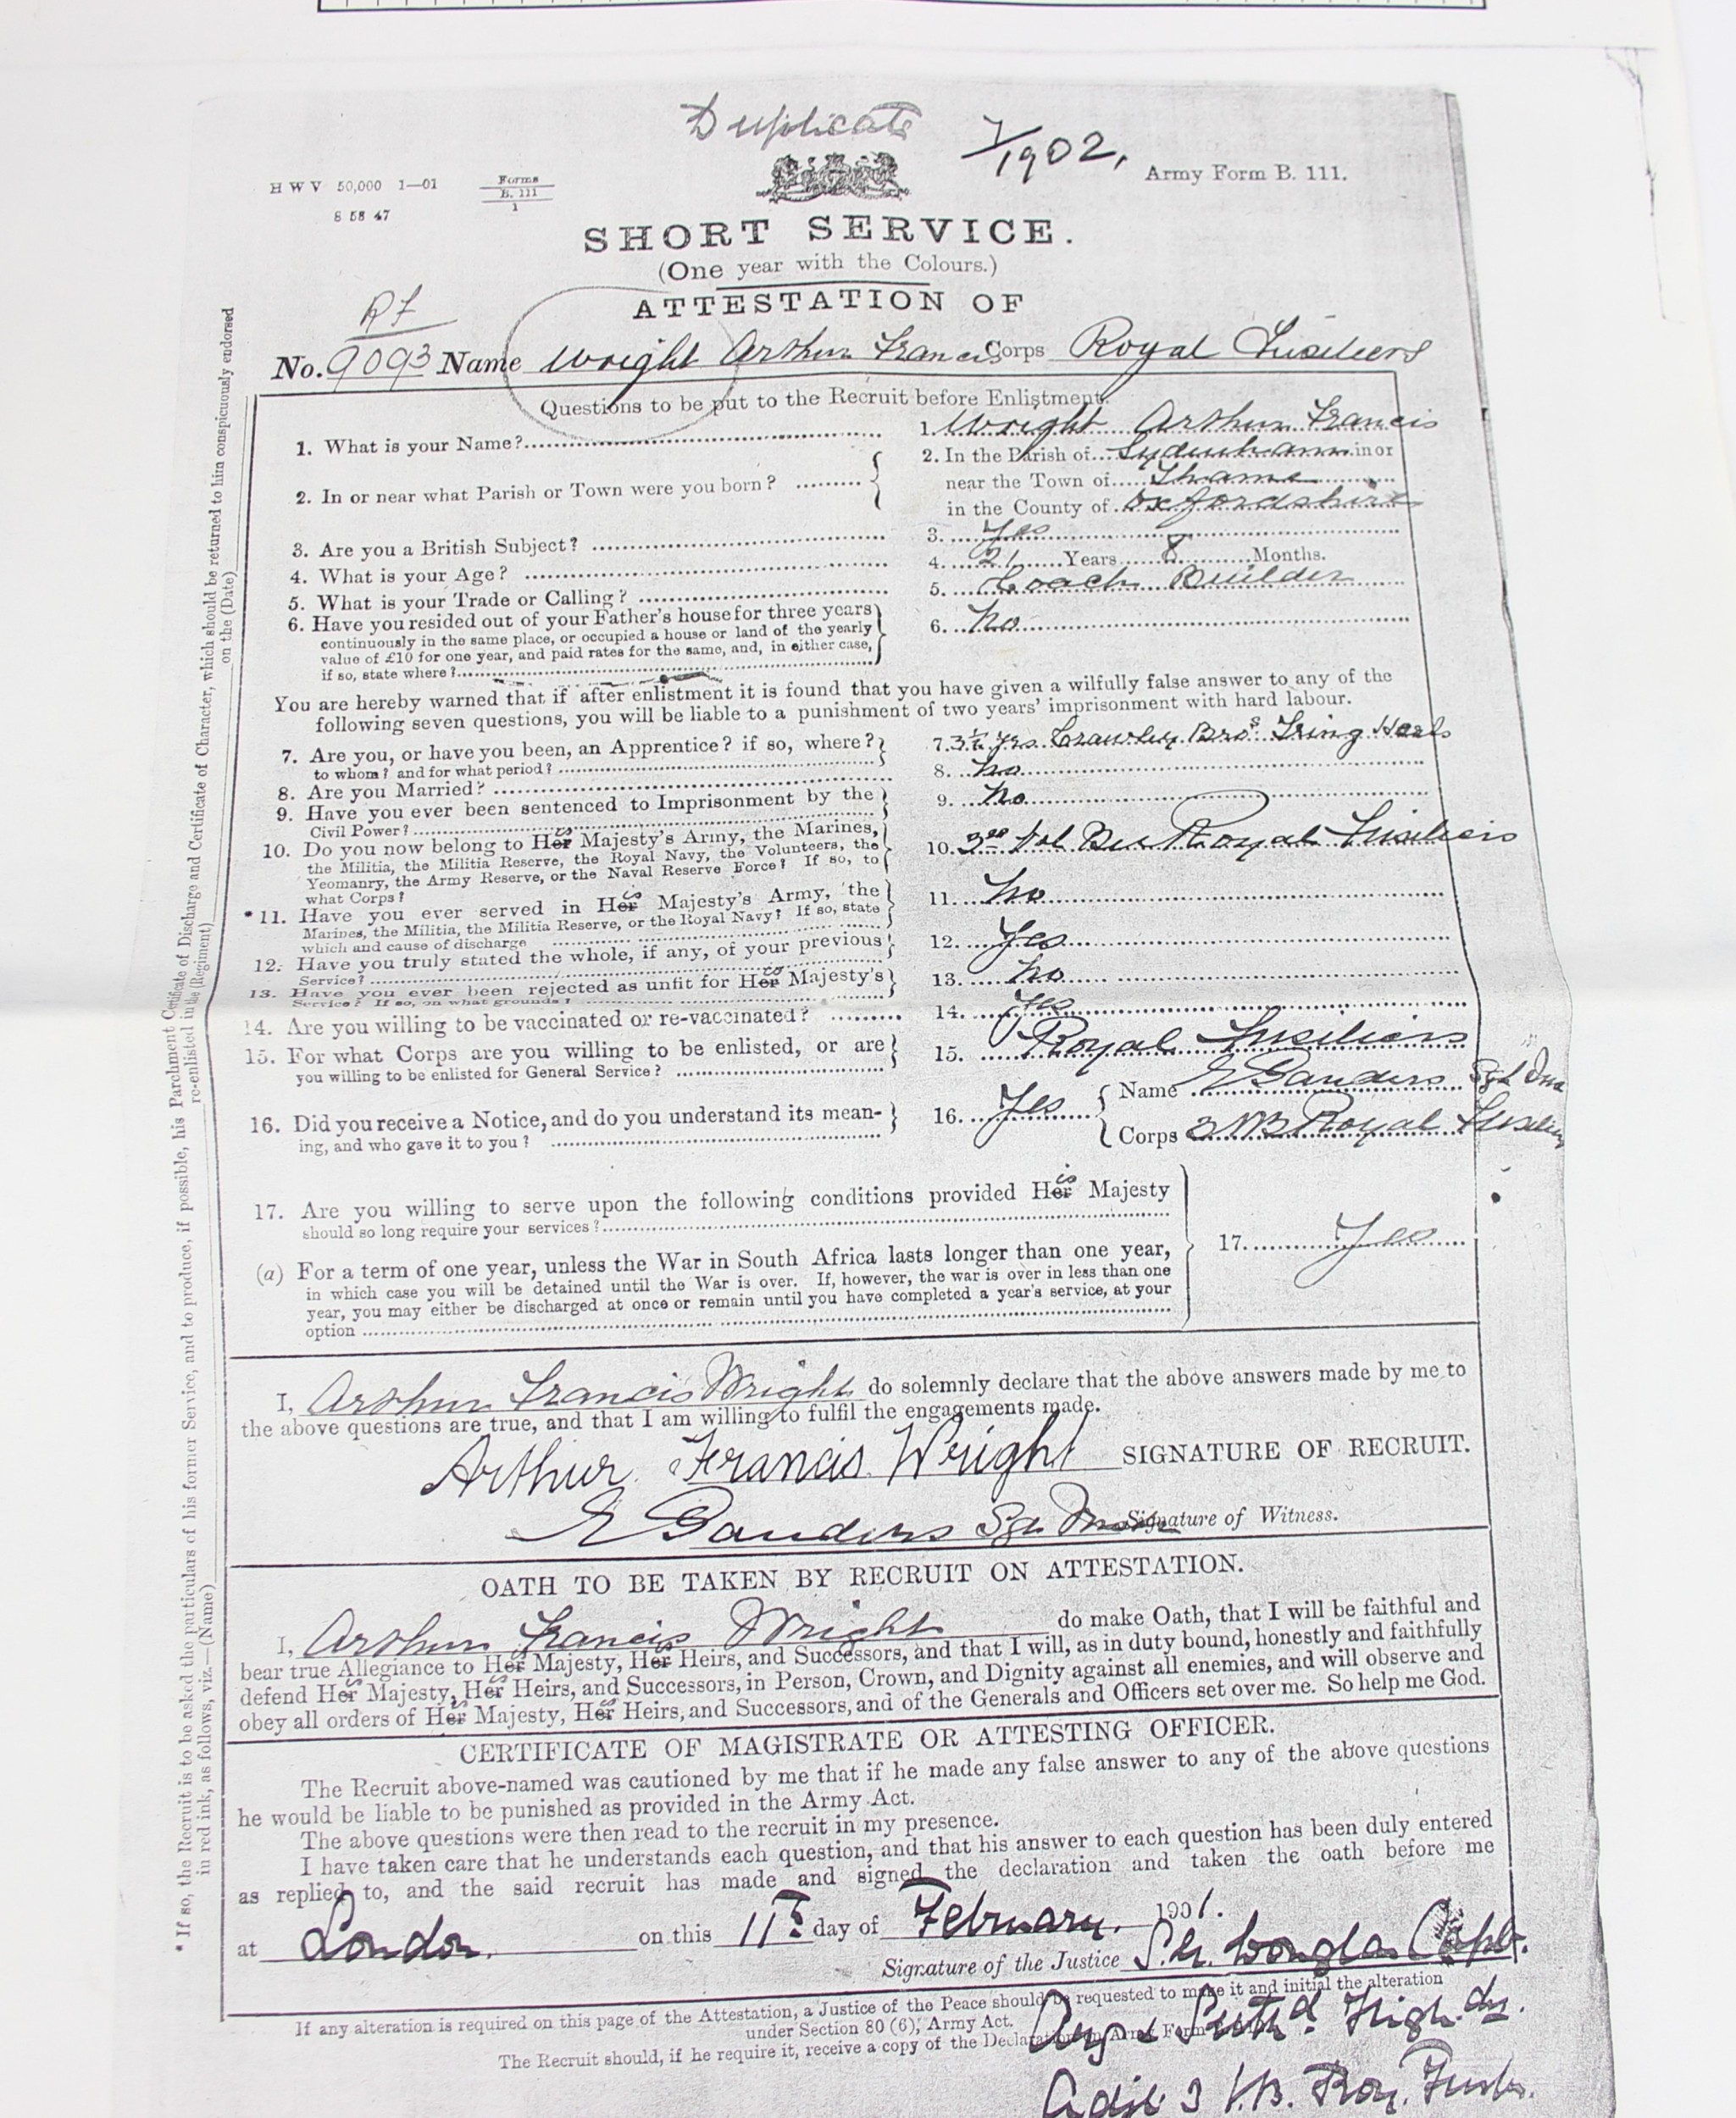 Duplicate
7/1902.
Army Form B. 111.
H W V 50,000 1—01
Forms
B. 111
1
8 58 47
SHORT SERVICE.
(One year with the Colours.)
ATTESTATION OF
RF
No. 9093 Name Wright Arthur Francis Corps Royal Fusiliers
Questions to be put to the Recruit before Enlistment.
1. What is your Name? 1. Wright Arthur Francis
2. In or near what Parish or Town were you born? 2. In the Parish of Sydenham in or
near the Town of Thame
in the County of Oxfordshire
3. Are you a British Subject? 3. Yes
4. What is your Age? 4. 21 Years 8 Months.
5. What is your Trade or Calling? 5. Coach Builder
6. Have you resided out of your Father's house for three years 6. No
continuously in the same place, or occupied a house or land of the yearly
value of £10 for one year, and paid rates for the same, and, in either case,
if so, state where?
You are hereby warned that if after enlistment it is found that you have given a wilfully false answer to any of the
following seven questions, you will be liable to a punishment of two years' imprisonment with hard labour.
7. Are you, or have you been, an Apprentice? if so, where? 7. 3½ yrs Crawley Bros Tring Herts
to whom? and for what period?
8. Are you Married? 8. No
9. Have you ever been sentenced to Imprisonment by the 9. No
Civil Power?
10. Do you now belong to His Majesty's Army, the Marines, 10. 3rd Vol Bn Royal Fusiliers
the Militia, the Militia Reserve, the Royal Navy, the Volunteers, the
Yeomanry, the Army Reserve, or the Naval Reserve Force? If so, to
what Corps?
*11. Have you ever served in His Majesty's Army, the 11. No
Marines, the Militia, the Militia Reserve, or the Royal Navy? If so, state
which and cause of discharge
12. Have you truly stated the whole, if any, of your previous 12. Yes
Service?
13. Have you ever been rejected as unfit for His Majesty's 13. No
Service? If so, on what grounds?
14. Are you willing to be vaccinated or re-vaccinated? 14. Yes
15. For what Corps are you willing to be enlisted, or are 15. Royal Fusiliers
you willing to be enlisted for General Service?
16. Did you receive a Notice, and do you understand its mean- 16. Yes Name E Sanders Sgt
ing, and who gave it to you? Corps 3 VB Royal Fusiliers
17. Are you willing to serve upon the following conditions provided His Majesty
should so long require your services?
17. Yes
(a) For a term of one year, unless the War in South Africa lasts longer than one year,
in which case you will be detained until the War is over. If, however, the war is over in less than one
year, you may either be discharged at once or remain until you have completed a year's service, at your
option
I, Arthur Francis Wright do solemnly declare that the above answers made by me to
the above questions are true, and that I am willing to fulfil the engagements made.
Arthur Francis Wright SIGNATURE OF RECRUIT.
E Sanders Sgt Signature of Witness.
OATH TO BE TAKEN BY RECRUIT ON ATTESTATION.
I, Arthur Francis Wright do make Oath, that I will be faithful and
bear true Allegiance to His Majesty, His Heirs, and Successors, and that I will, as in duty bound, honestly and faithfully
defend His Majesty, His Heirs, and Successors, in Person, Crown, and Dignity against all enemies, and will observe and
obey all orders of His Majesty, His Heirs, and Successors, and of the Generals and Officers set over me. So help me God.
CERTIFICATE OF MAGISTRATE OR ATTESTING OFFICER.
The Recruit above-named was cautioned by me that if he made any false answer to any of the above questions
he would be liable to be punished as provided in the Army Act.
The above questions were then read to the recruit in my presence.
I have taken care that he understands each question, and that his answer to each question has been duly entered
as replied to, and the said recruit has made and signed the declaration and taken the oath before me
at London. on this 11th day of February. 1901.
Signature of the Justice Douglas Capt.
Arg & Suthd. Highdrs.
Adjt 3 V.B. Roy. Fusrs.
If any alteration is required on this page of the Attestation, a Justice of the Peace should be requested to make it and initial the alteration
under Section 80 (6), Army Act.
The Recruit should, if he require it, receive a copy of the Declaration on Army Form
* If so, the Recruit is to be asked the particulars of his former Service, and to produce, if possible, his Parchment Certificate of Discharge and Certificate of Character, which should be returned to him conspicuously endorsed
in red ink, as follows, viz.—(Name) re-enlisted in the (Regiment) on the (Date)